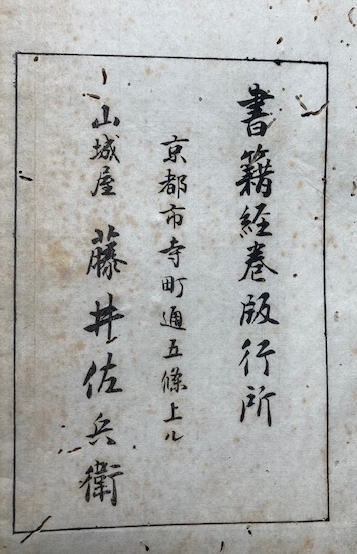 書籍経巻版行所
京都市寺町通五條上ル
山城屋 藤井佐兵衛